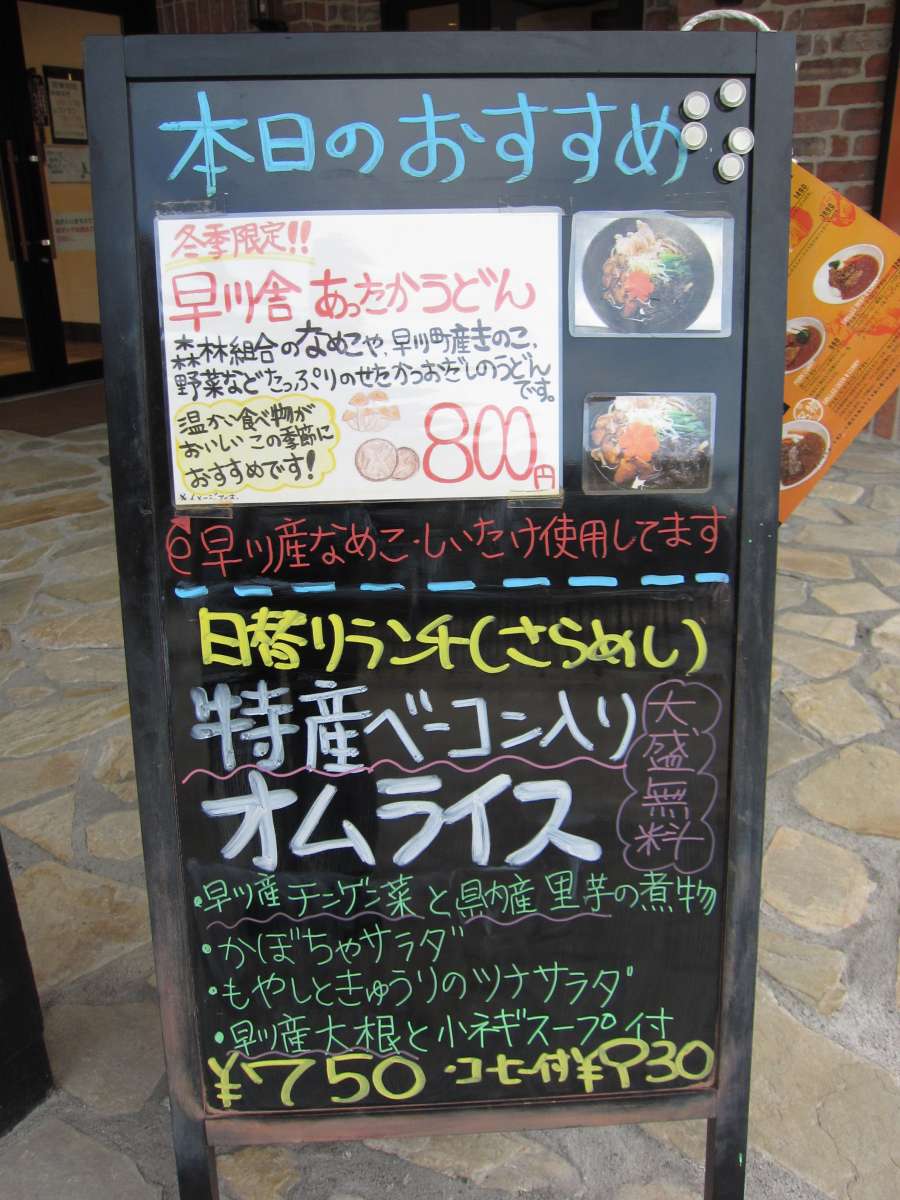 本日のおすすめ
冬季限定!!
早川舎 あったかうどん
森林組合のなめこや、早川町産きのこ、
野菜などたっぷりのせたかつおだしのうどん
です。
温かい食べ物が
おいしいこの季節に
おすすめです!
800円
※イメージです。
早川産なめこ・しいたけ使用してます
日替りランチ(さらめし)
特産ベーコン入り
オムライス
大盛無料
・早川産チンゲン菜と県内産里芋の煮物
・かぼちゃサラダ
・もやしときゅうりのツナサラダ
・早川産大根と小ネギスープ付
¥750 ・コーヒー付¥930